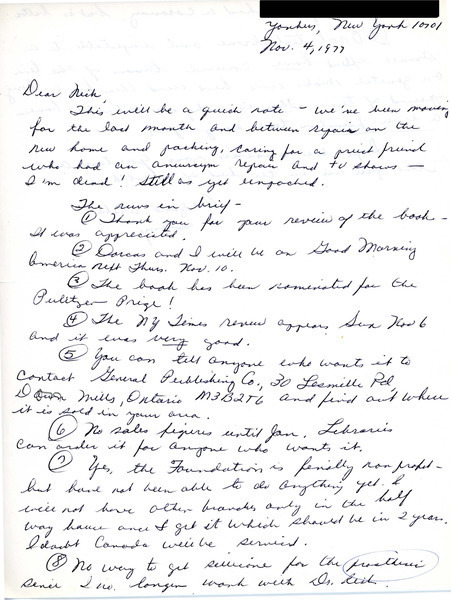 Yonkers, New York 10701
Nov. 4, 1977
Dear Nick,
This will be a quick note - we've been moving
for the last month and between repair on the
new home and packing, caring for a priest friend
who had an aneurysm repair and tv shows -
I'm dead! Still as yet unpacked.
The news in brief -
① Thank you for your review of the book -
It was appreciated.
② Dorcas and I will be on Good Morning
America next Thurs. Nov. 10.
③ The book has been nominated for the
Pulitzer Prize!
④ The NY Times review appears Sun Nov 6
and it was very good.
⑤ You can tell anyone who wants it to
contact General Publishing Co., 30 Lesmille Rd,
Don Mills, Ontario M3B2T6 and find out where
it is sold in your area.
⑥ No sales figures until Jan. Libraries
can order it for anyone who wants it.
⑦ Yes, the Foundation is finally non profit -
but have not been able to do anything yet. I
will not have other branches only in the half
way house once I get it which should be in 2 years.
I doubt Canada will be serviced.
⑧ No way to get silicone for the prosthesis
since I no longer work with Dr.